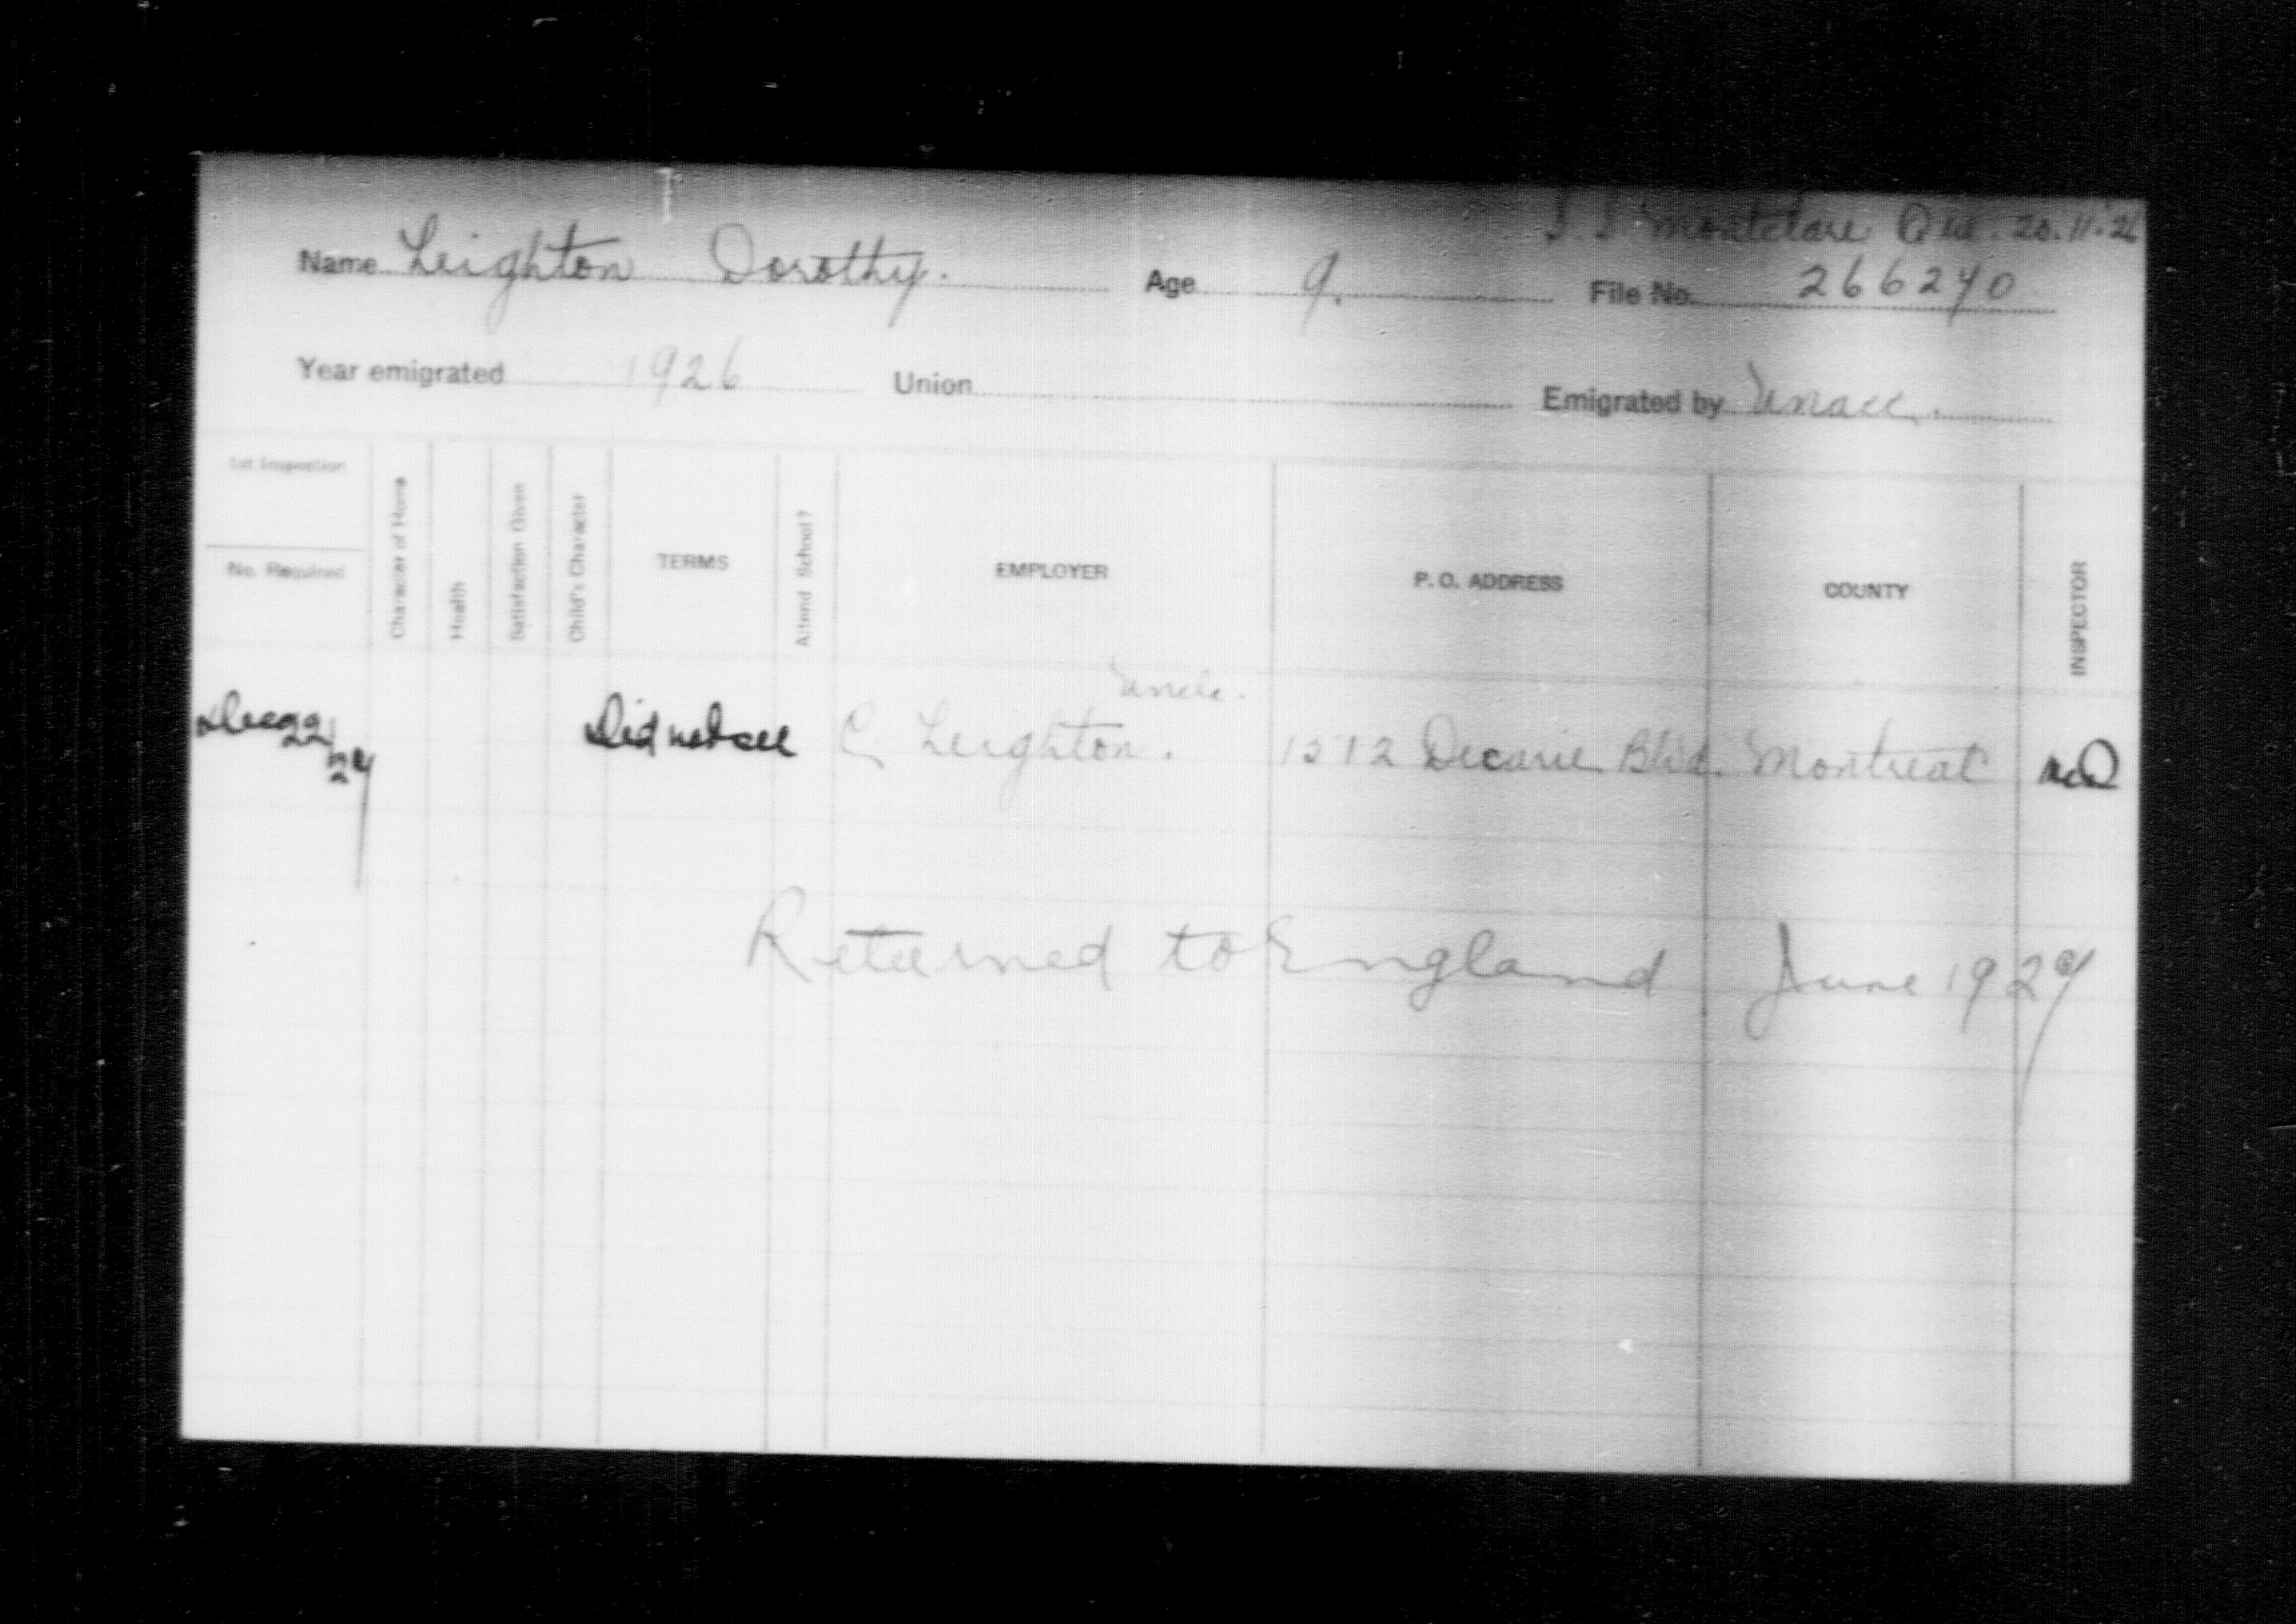 S. S. Montclare Que. 20.11.26
Name Leighton Dorothy. Age 9. File No. 266270
Year emigrated 1926 Union Emigrated by Unacc.
1st Inspection
No. Required
Character of Home
Health
Satisfaction Given
Child's Character
TERMS
Attend School?
EMPLOYER
P. O. ADDRESS
COUNTY
INSPECTOR
Uncle.
Dec 22/27 Did not see C. Leighton. 1572 Decarie Blvd. Montreal McD
Returned to England June 1927